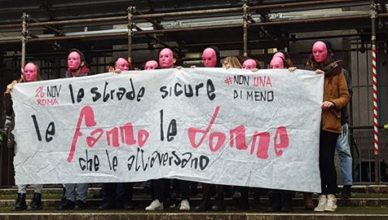 26 NOV
ROMA
le strade sicure
le fanno le donne
che le attraversano
#NON UNA
DI MENO